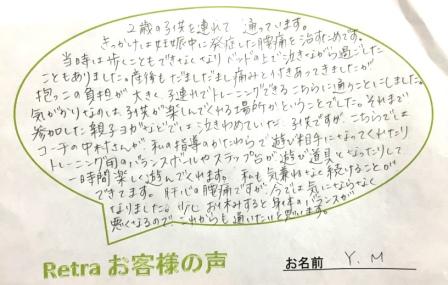 2歳の子供を連れて 通っています。
きっかけは妊娠中に発症した腰痛を治すためです。
当時は歩くこともできなくなりベッドの上で泣きながら過ごした
こともありました。産後もだましだまし痛みと付きあってきましたが
抱っこの負担が大きく、子連れでトレーニングできるこちらに通うことにしました。
気がかりなのは、子供が楽しんでくれる場所かということでした。それまで
参加した親子ヨガなどでは泣きわめいていた子供ですが、こちらでは
コーチの中村さんが、私の指導のかたわらで遊び相手になってくれたり
トレーニング用のバランスボールやステップ台が遊び道具となったりして
一時間楽しく遊んでくれます。私も気兼ねなく続けることが
できてます。肝心の腰痛ですが、今では気にならなく
なりました。少しお休みすると身体のバランスが
悪くなるので、これからも通いたいと思います。
Retra お客様の声
お名前 Y.M